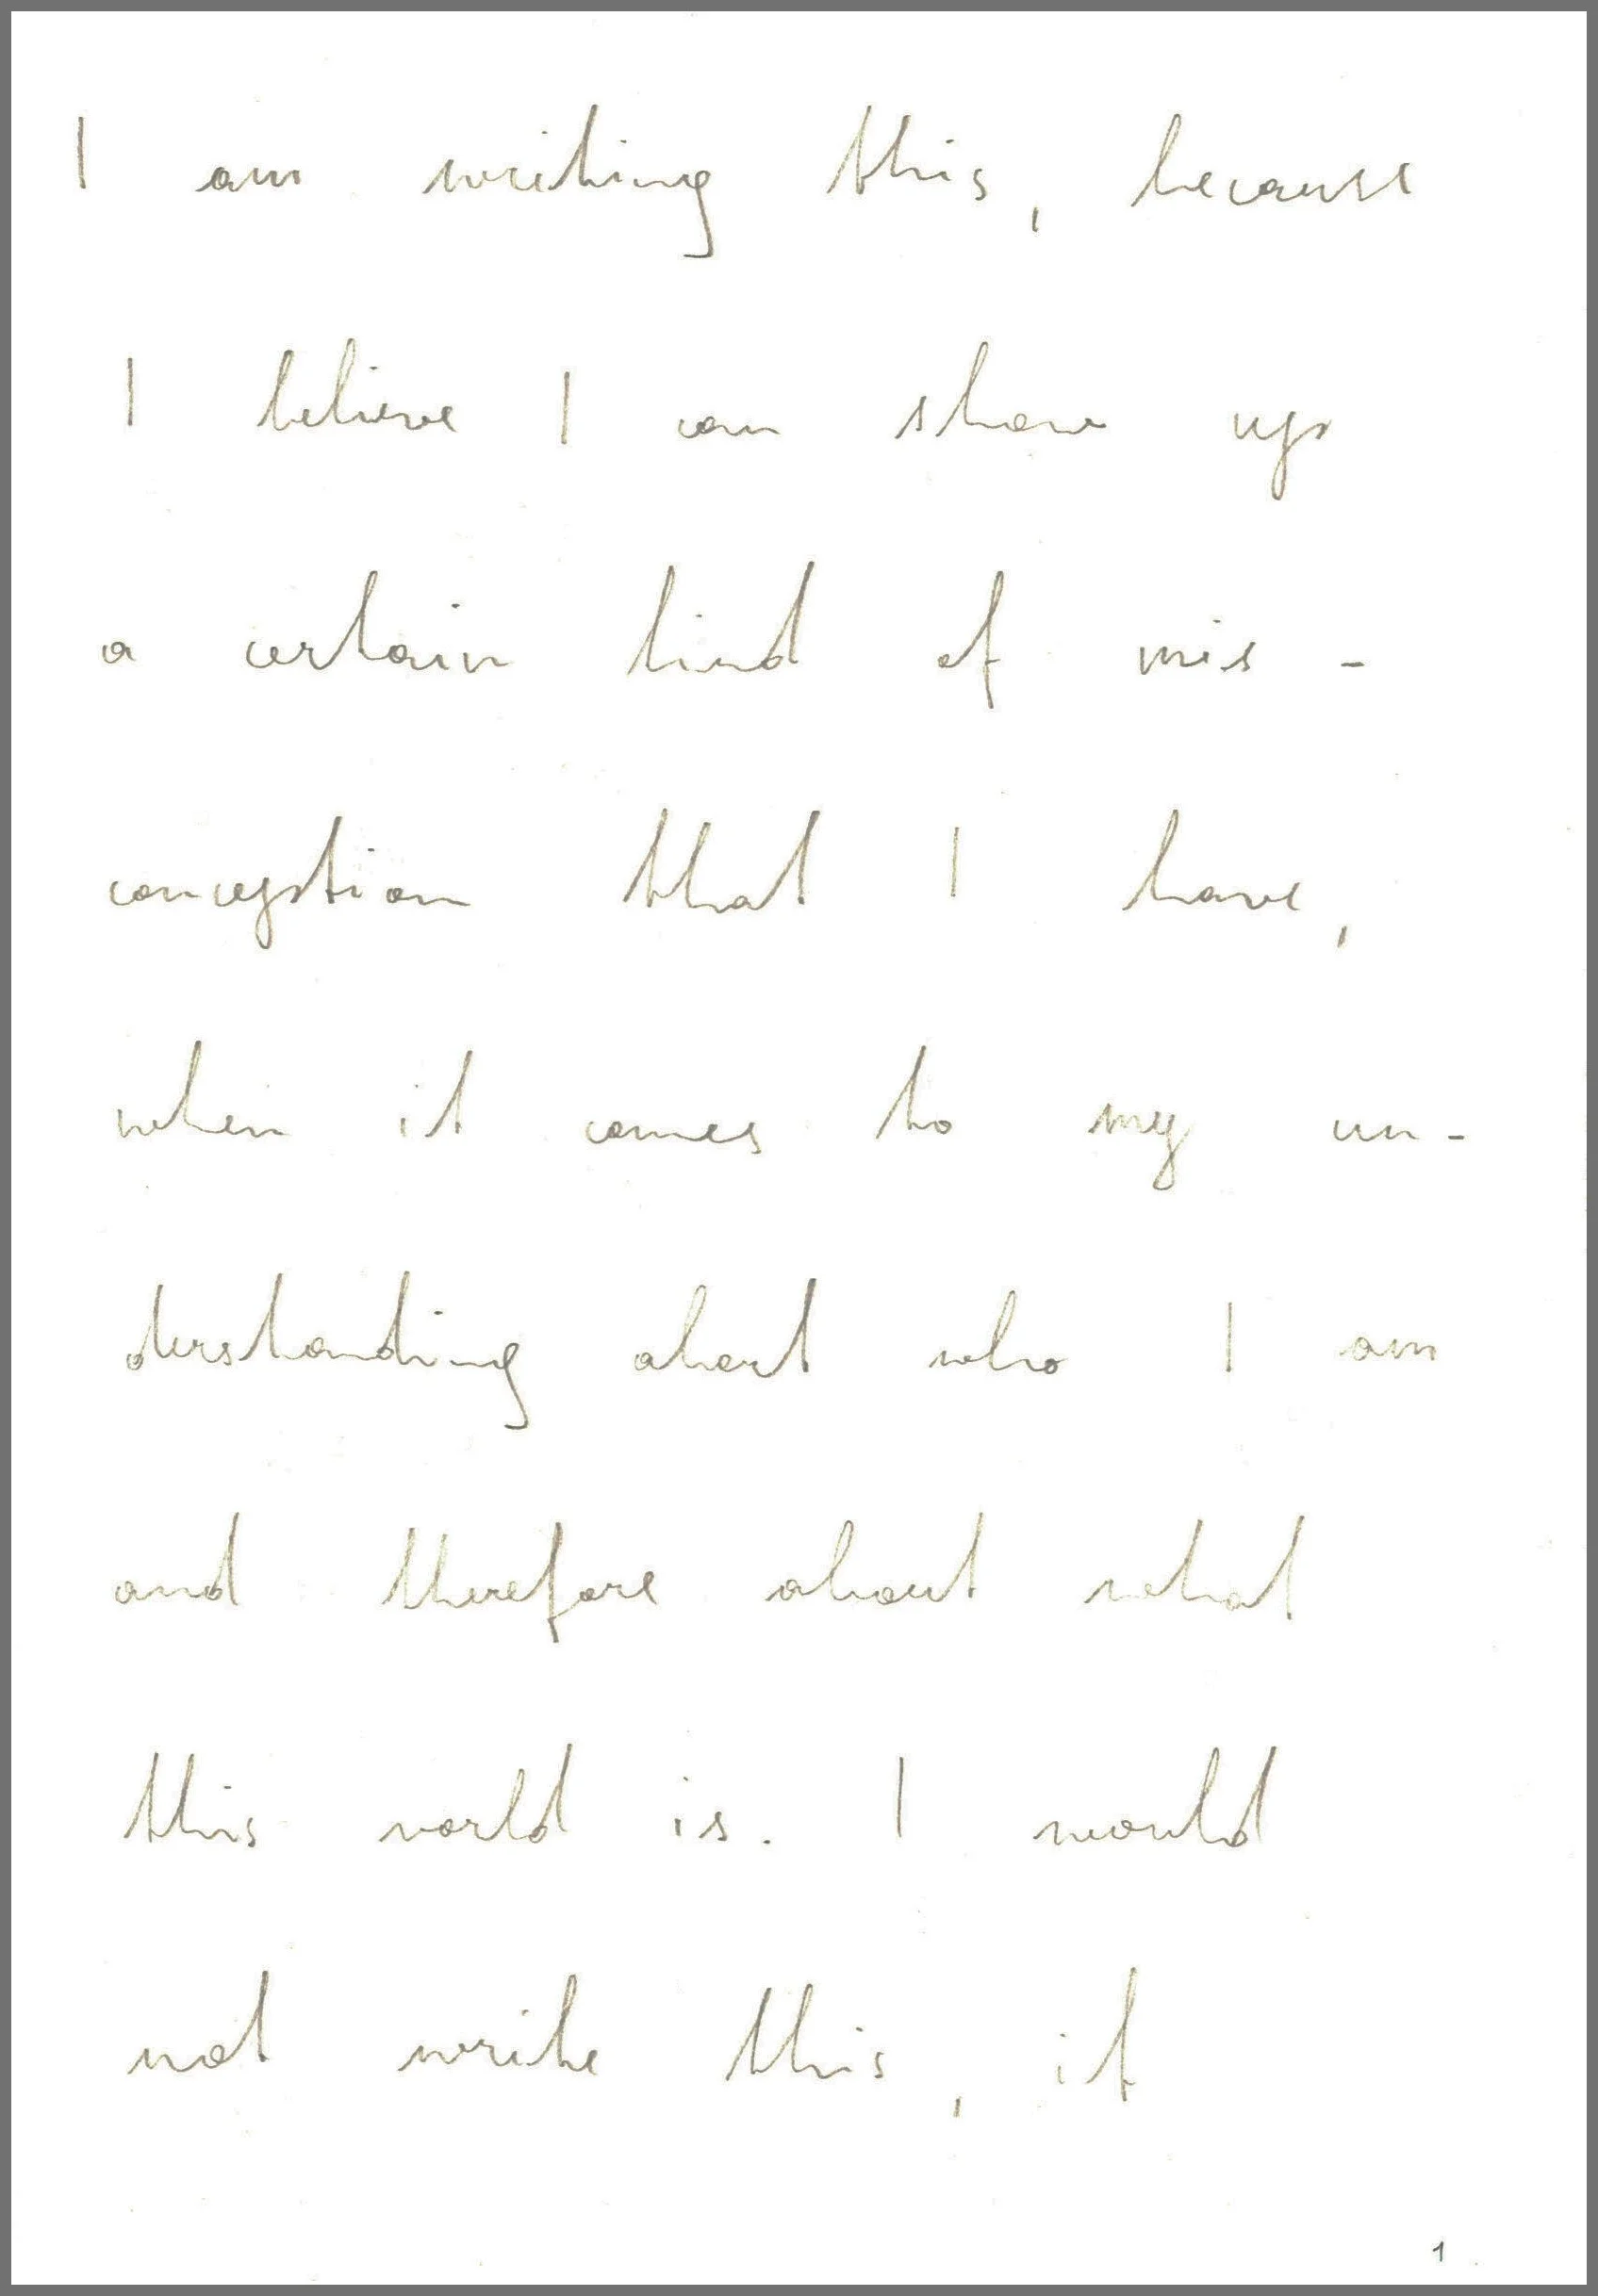 I am writing this, because
I believe I can show up
a certain kind of mis -
conception that I have,
when it comes to my un-
derstanding about who I am
and therefore about what
this world is. I would
not write this, if
1